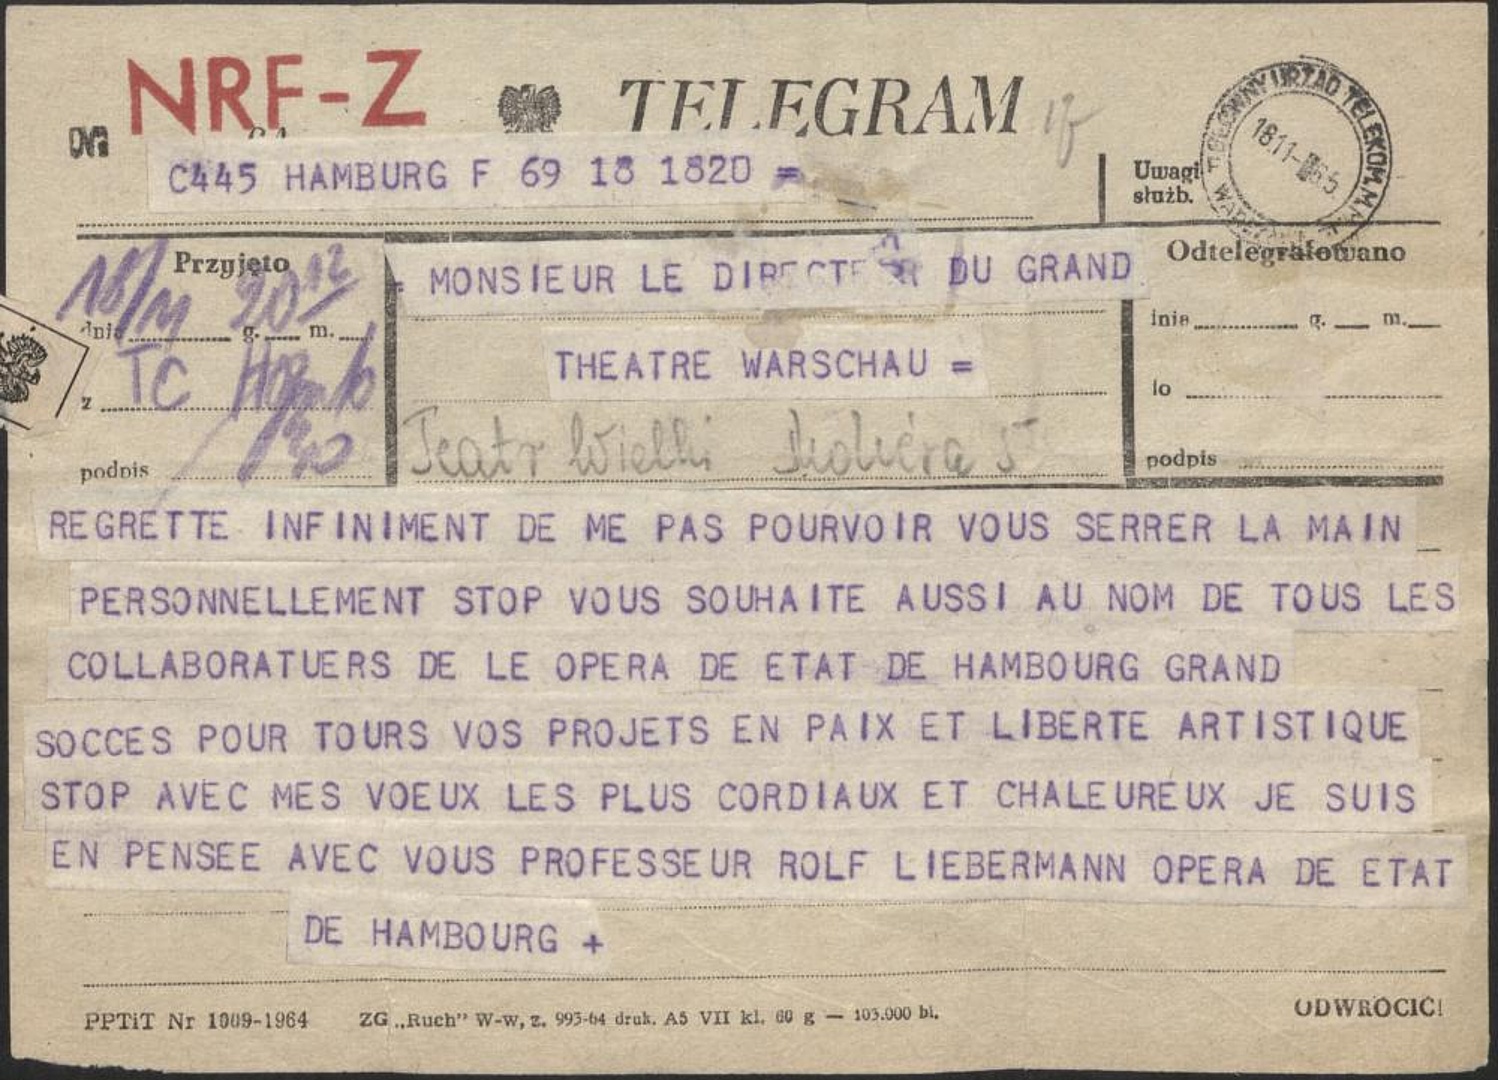 NRF-Z
TELEGRAM
C445 HAMBURG F 69 18 1820 =
Uwagi
służb.
1811-65
Przyjęto
18/11 20 12
dnia g. m.
z TC
podpis
MONSIEUR LE DIRECTEUR DU GRAND
THEATRE WARSCHAU =
Teatr Wielki Moliera 5
Odtelegrafowano
dnia g. m.
do
podpis
REGRETTE INFINIMENT DE ME PAS POURVOIR VOUS SERRER LA MAIN
PERSONNELLEMENT STOP VOUS SOUHAITE AUSSI AU NOM DE TOUS LES
COLLABORATUERS DE LE OPERA DE ETAT DE HAMBOURG GRAND
SOCCES POUR TOURS VOS PROJETS EN PAIX ET LIBERTE ARTISTIQUE
STOP AVEC MES VOEUX LES PLUS CORDIAUX ET CHALEUREUX JE SUIS
EN PENSEE AVEC VOUS PROFESSEUR ROLF LIEBERMANN OPERA DE ETAT
DE HAMBOURG +
PPTiT Nr 1009-1964 ZG „Ruch" W-w, z. 993-64 druk. A5 VII kl. 60 g — 103.000 bl.
ODWRÓCIĆ!